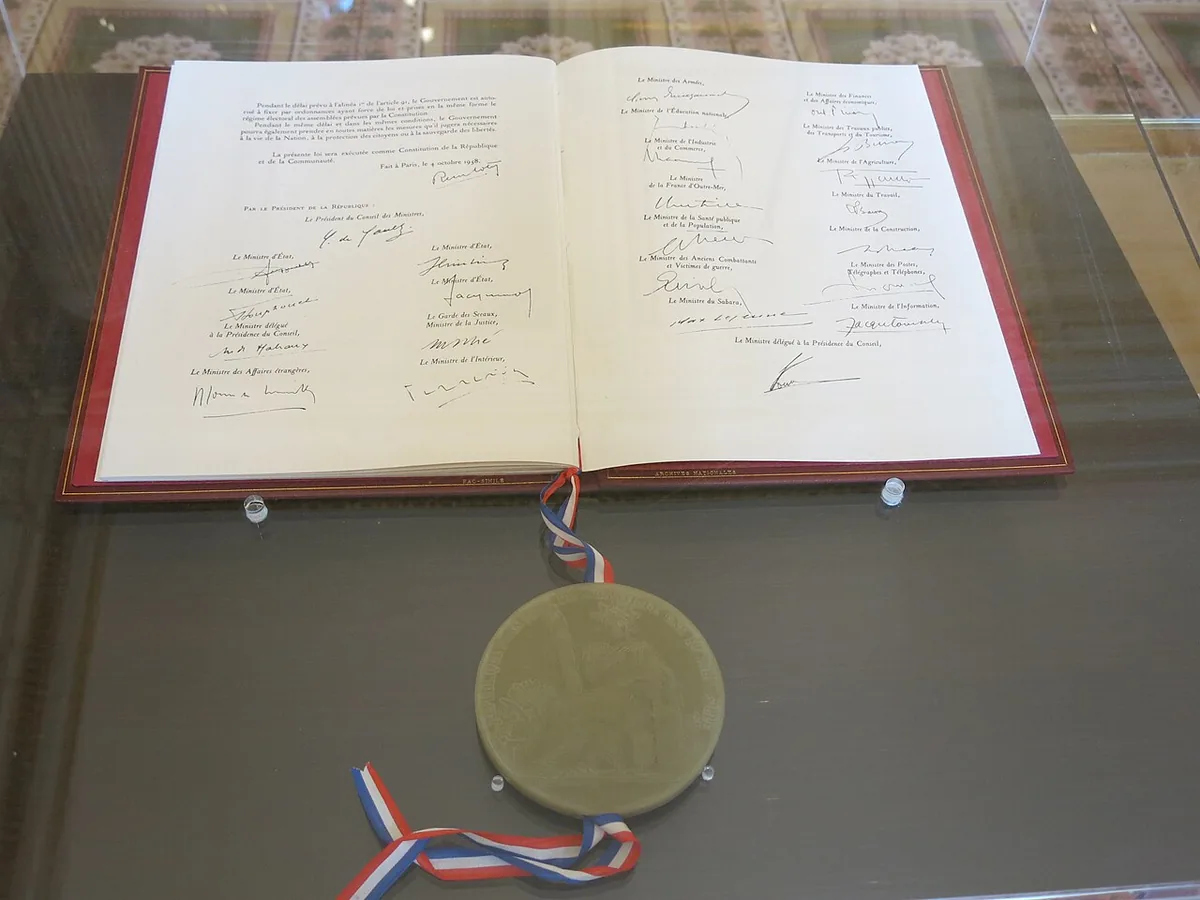 Pendant le délai prévu à l'alinéa 1er de l'article 91, le Gouvernement est auto-
risé à fixer par ordonnances ayant force de loi et prises en la même forme le
régime électoral des assemblées prévues par la Constitution.
Pendant le même délai et dans les mêmes conditions, le Gouvernement
pourra également prendre en toutes matières les mesures qu'il jugera nécessaires
à la vie de la Nation, à la protection des citoyens ou à la sauvegarde des libertés.
La présente loi sera exécutée comme Constitution de la République
et de la Communauté.
Fait à Paris, le 4 octobre 1958.
Par le Président de la République :
Le Président du Conseil des Ministres,
Le Ministre d'État,
Le Ministre d'État,
Le Ministre délégué
à la Présidence du Conseil,
Le Ministre des Affaires étrangères,
Le Ministre d'État,
Le Ministre d'État,
Le Garde des Sceaux,
Ministre de la Justice,
Le Ministre de l'Intérieur,
Le Ministre des Armées,
Le Ministre de l'Éducation nationale,
Le Ministre de l'Industrie
et du Commerce,
Le Ministre
de la France d'Outre-Mer,
Le Ministre de la Santé publique
et de la Population,
Le Ministre des Anciens Combattants
et Victimes de guerre,
Le Ministre du Sahara,
Le Ministre des Finances
et des Affaires économiques,
Le Ministre des Travaux publics,
des Transports et du Tourisme,
Le Ministre de l'Agriculture,
Le Ministre du Travail,
Le Ministre de la Construction,
Le Ministre des Postes,
Télégraphes et Téléphones,
Le Ministre de l'Information,
Le Ministre délégué à la Présidence du Conseil,
FAC-SIMILE
ARCHIVES NATIONALES